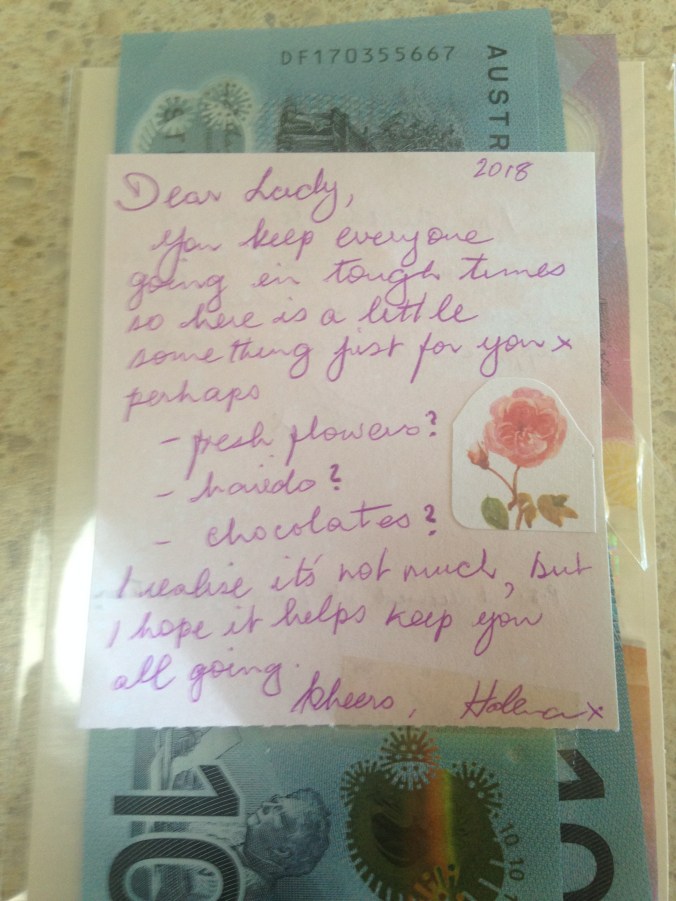 DF170355667
AUSTR
2018
Dear Lady,
You keep everyone
going in tough times
so here is a little
something just for you x
perhaps
- fresh flowers?
- hairdo?
- chocolates?
I realise it's not much, but
I hope it helps keep you
all going.
Cheers, Helena x
10
10
10 10